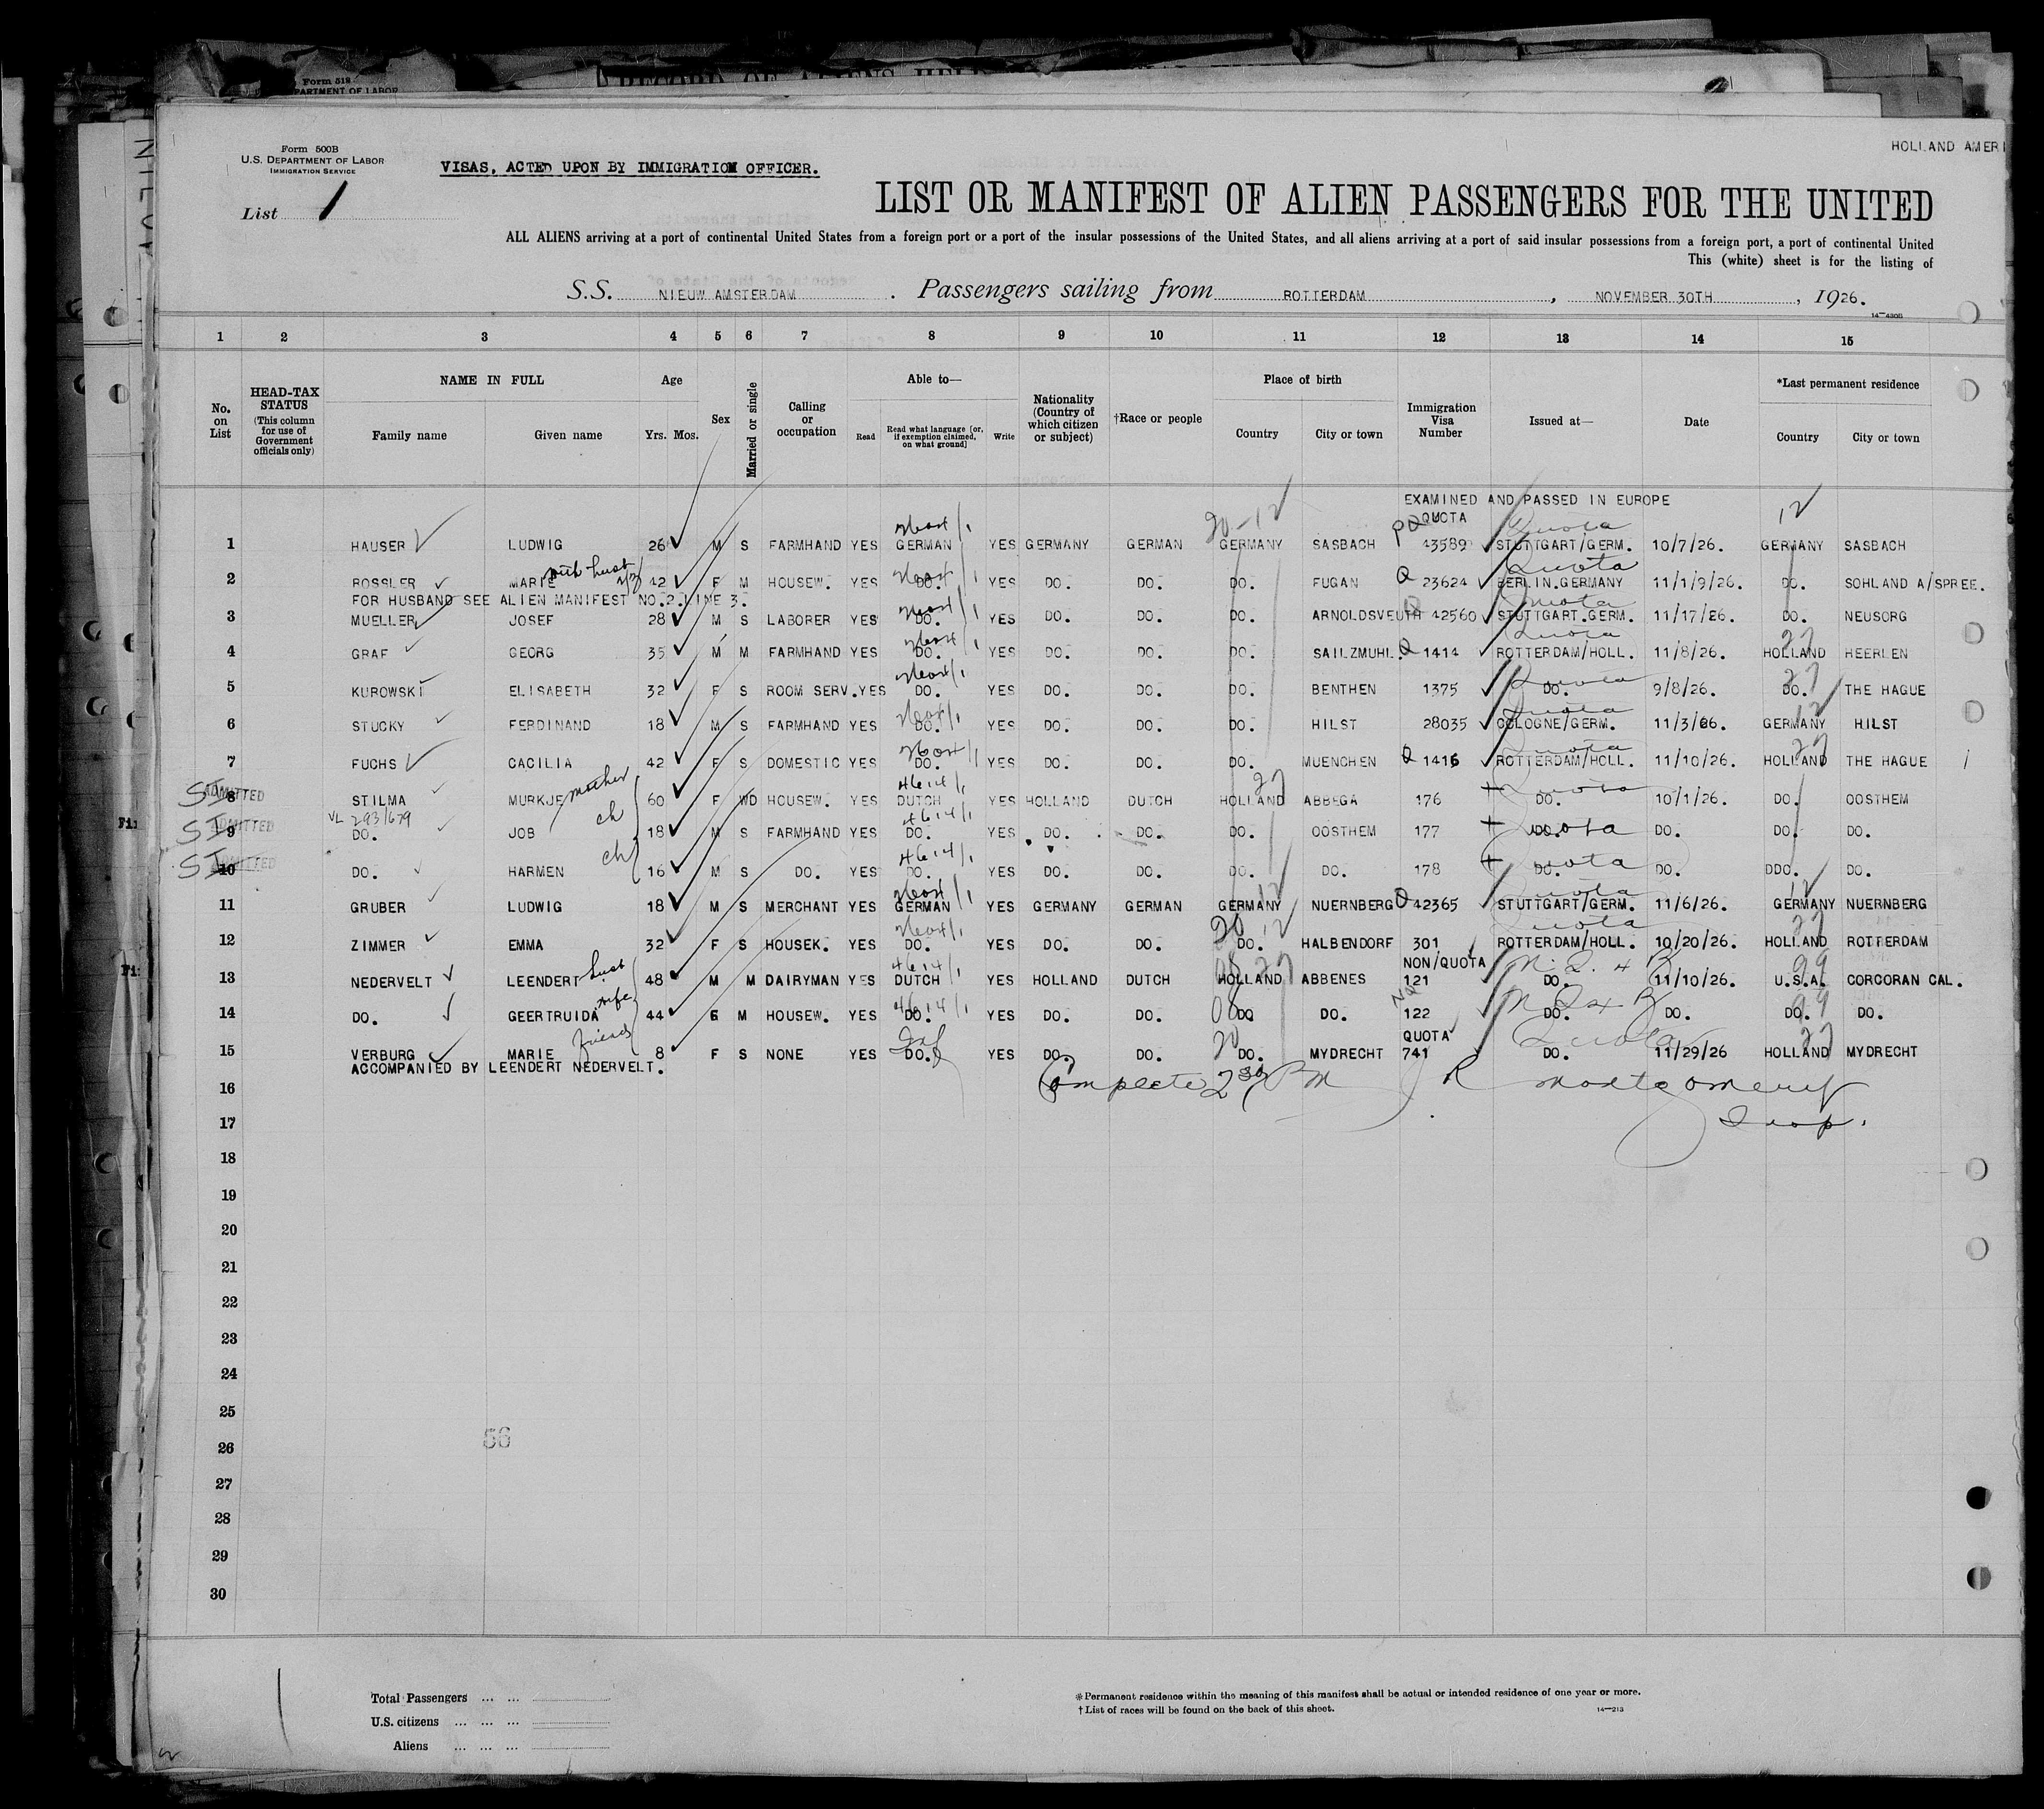 Form 519
DEPARTMENT OF LABOR
RECORD OF ALIENS HELD
Form 500B
U.S. DEPARTMENT OF LABOR
IMMIGRATION SERVICE
List 1
VISAS, ACTED UPON BY IMMIGRATION OFFICER.
HOLLAND AMERI
LIST OR MANIFEST OF ALIEN PASSENGERS FOR THE UNITED
ALL ALIENS arriving at a port of continental United States from a foreign port or a port of the insular possessions of the United States, and all aliens arriving at a port of said insular possessions from a foreign port, a port of continental United
This (white) sheet is for the listing of
S.S. NIEUW AMSTERDAM. Passengers sailing from ROTTERDAM, NOVEMBER 30TH, 1926.
1 2 3 4 5 6 7 8 9 10 11 12 13 14 15
No. on List
HEAD-TAX STATUS (This column for use of Government officials only)
NAME IN FULL Family name Given name
Age Yrs. Mos.
Sex
Married or single
Calling or occupation
Able to— Read Read what language [or, if exemption claimed, on what ground] Write
Nationality (Country of which citizen or subject)
†Race or people
Place of birth Country City or town
Immigration Visa Number
Issued at—
Date
*Last permanent residence Country City or town
EXAMINED AND PASSED IN EUROPE
20-12 QUOTA Quota 12
1 HAUSER LUDWIG 26 M S FARMHAND YES GERMAN YES GERMANY GERMAN GERMANY SASBACH 43589 STUTTGART/GERM. 10/7/26. GERMANY SASBACH
with husb 2/3 Quota
2 ROSSLER MARIE 42 F M HOUSEW. YES DO. YES DO. DO. DO. FUGAN Q 23624 BERLIN.GERMANY 11/1/9/26. DO. SOHLAND A/SPREE.
FOR HUSBAND SEE ALIEN MANIFEST NO.2.LINE 3. Quota
3 MUELLER JOSEF 28 M S LABORER YES DO. YES DO. DO. DO. ARNOLDSVEUTH 42560 STUTTGART.GERM. 11/17/26. DO. NEUSORG
Quota 27
4 GRAF GEORG 35 M M FARMHAND YES DO. YES DO. DO. DO. SAILZMUHL. Q 1414 ROTTERDAM/HOLL. 11/8/26. HOLLAND HEERLEN
Quota 27
5 KUROWSKI ELISABETH 32 F S ROOM SERV. YES DO. YES DO. DO. DO. BENTHEN 1375 DO. 9/8/26. DO. THE HAGUE
Quota 12
6 STUCKY FERDINAND 18 M S FARMHAND YES DO. YES DO. DO. DO. HILST 28035 COLOGNE/GERM. 11/3/26. GERMANY HILST
Quota 27
7 FUCHS CACILIA 42 F S DOMESTIC YES DO. YES DO. DO. DO. MUENCHEN Q 1416 ROTTERDAM/HOLL. 11/10/26. HOLLAND THE HAGUE
mother 27 Quota
SI ADMITTED 8 STILMA MURKJE 60 F WD HOUSEW. YES DUTCH YES HOLLAND DUTCH HOLLAND ABBEGA 176 DO. 10/1/26. DO. OOSTHEM
VL 293/679 ch Quota
SI ADMITTED 9 DO. JOB 18 M S FARMHAND YES DO. YES DO. DO. DO. OOSTHEM 177 DO. DO. DO. DO.
ch Quota
SI ADMITTED 10 DO. HARMEN 16 M S DO. YES DO. YES DO. DO. DO. DO. 178 DO. DO. DDO. DO.
12 Quota 12
11 GRUBER LUDWIG 18 M S MERCHANT YES GERMAN YES GERMANY GERMAN GERMANY NUERNBERG Q 42365 STUTTGART/GERM. 11/6/26. GERMANY NUERNBERG
20 12 Quota 27
12 ZIMMER EMMA 32 F S HOUSEK. YES DO. YES DO. DO. DO. HALBENDORF 301 ROTTERDAM/HOLL. 10/20/26. HOLLAND ROTTERDAM
husb NON/QUOTA 99
13 NEDERVELT LEENDERT 48 M M DAIRYMAN YES DUTCH YES HOLLAND DUTCH HOLLAND ABBENES 121 DO. 11/10/26. U.S.A. CORCORAN CAL.
wife NQ 99
14 DO. GEERTRUIDA 44 F M HOUSEW. YES DO. YES DO. DO. DO. DO. 122 DO. DO. DO. DO.
friend QUOTA Quota 27
15 VERBURG MARIE 8 F S NONE YES DO. YES DO. DO. 20 DO. MYDRECHT 741 DO. 11/29/26 HOLLAND MYDRECHT
ACCOMPANIED BY LEENDERT NEDERVELT.
16 Complete 2 30 PM J R Montgomery
17 Insp.
18
19
20
21
22
23
24
25
26
27
28
29
30
56
Total Passengers
U.S. citizens
Aliens
*Permanent residence within the meaning of this manifest shall be actual or intended residence of one year or more.
†List of races will be found on the back of this sheet.
14—213